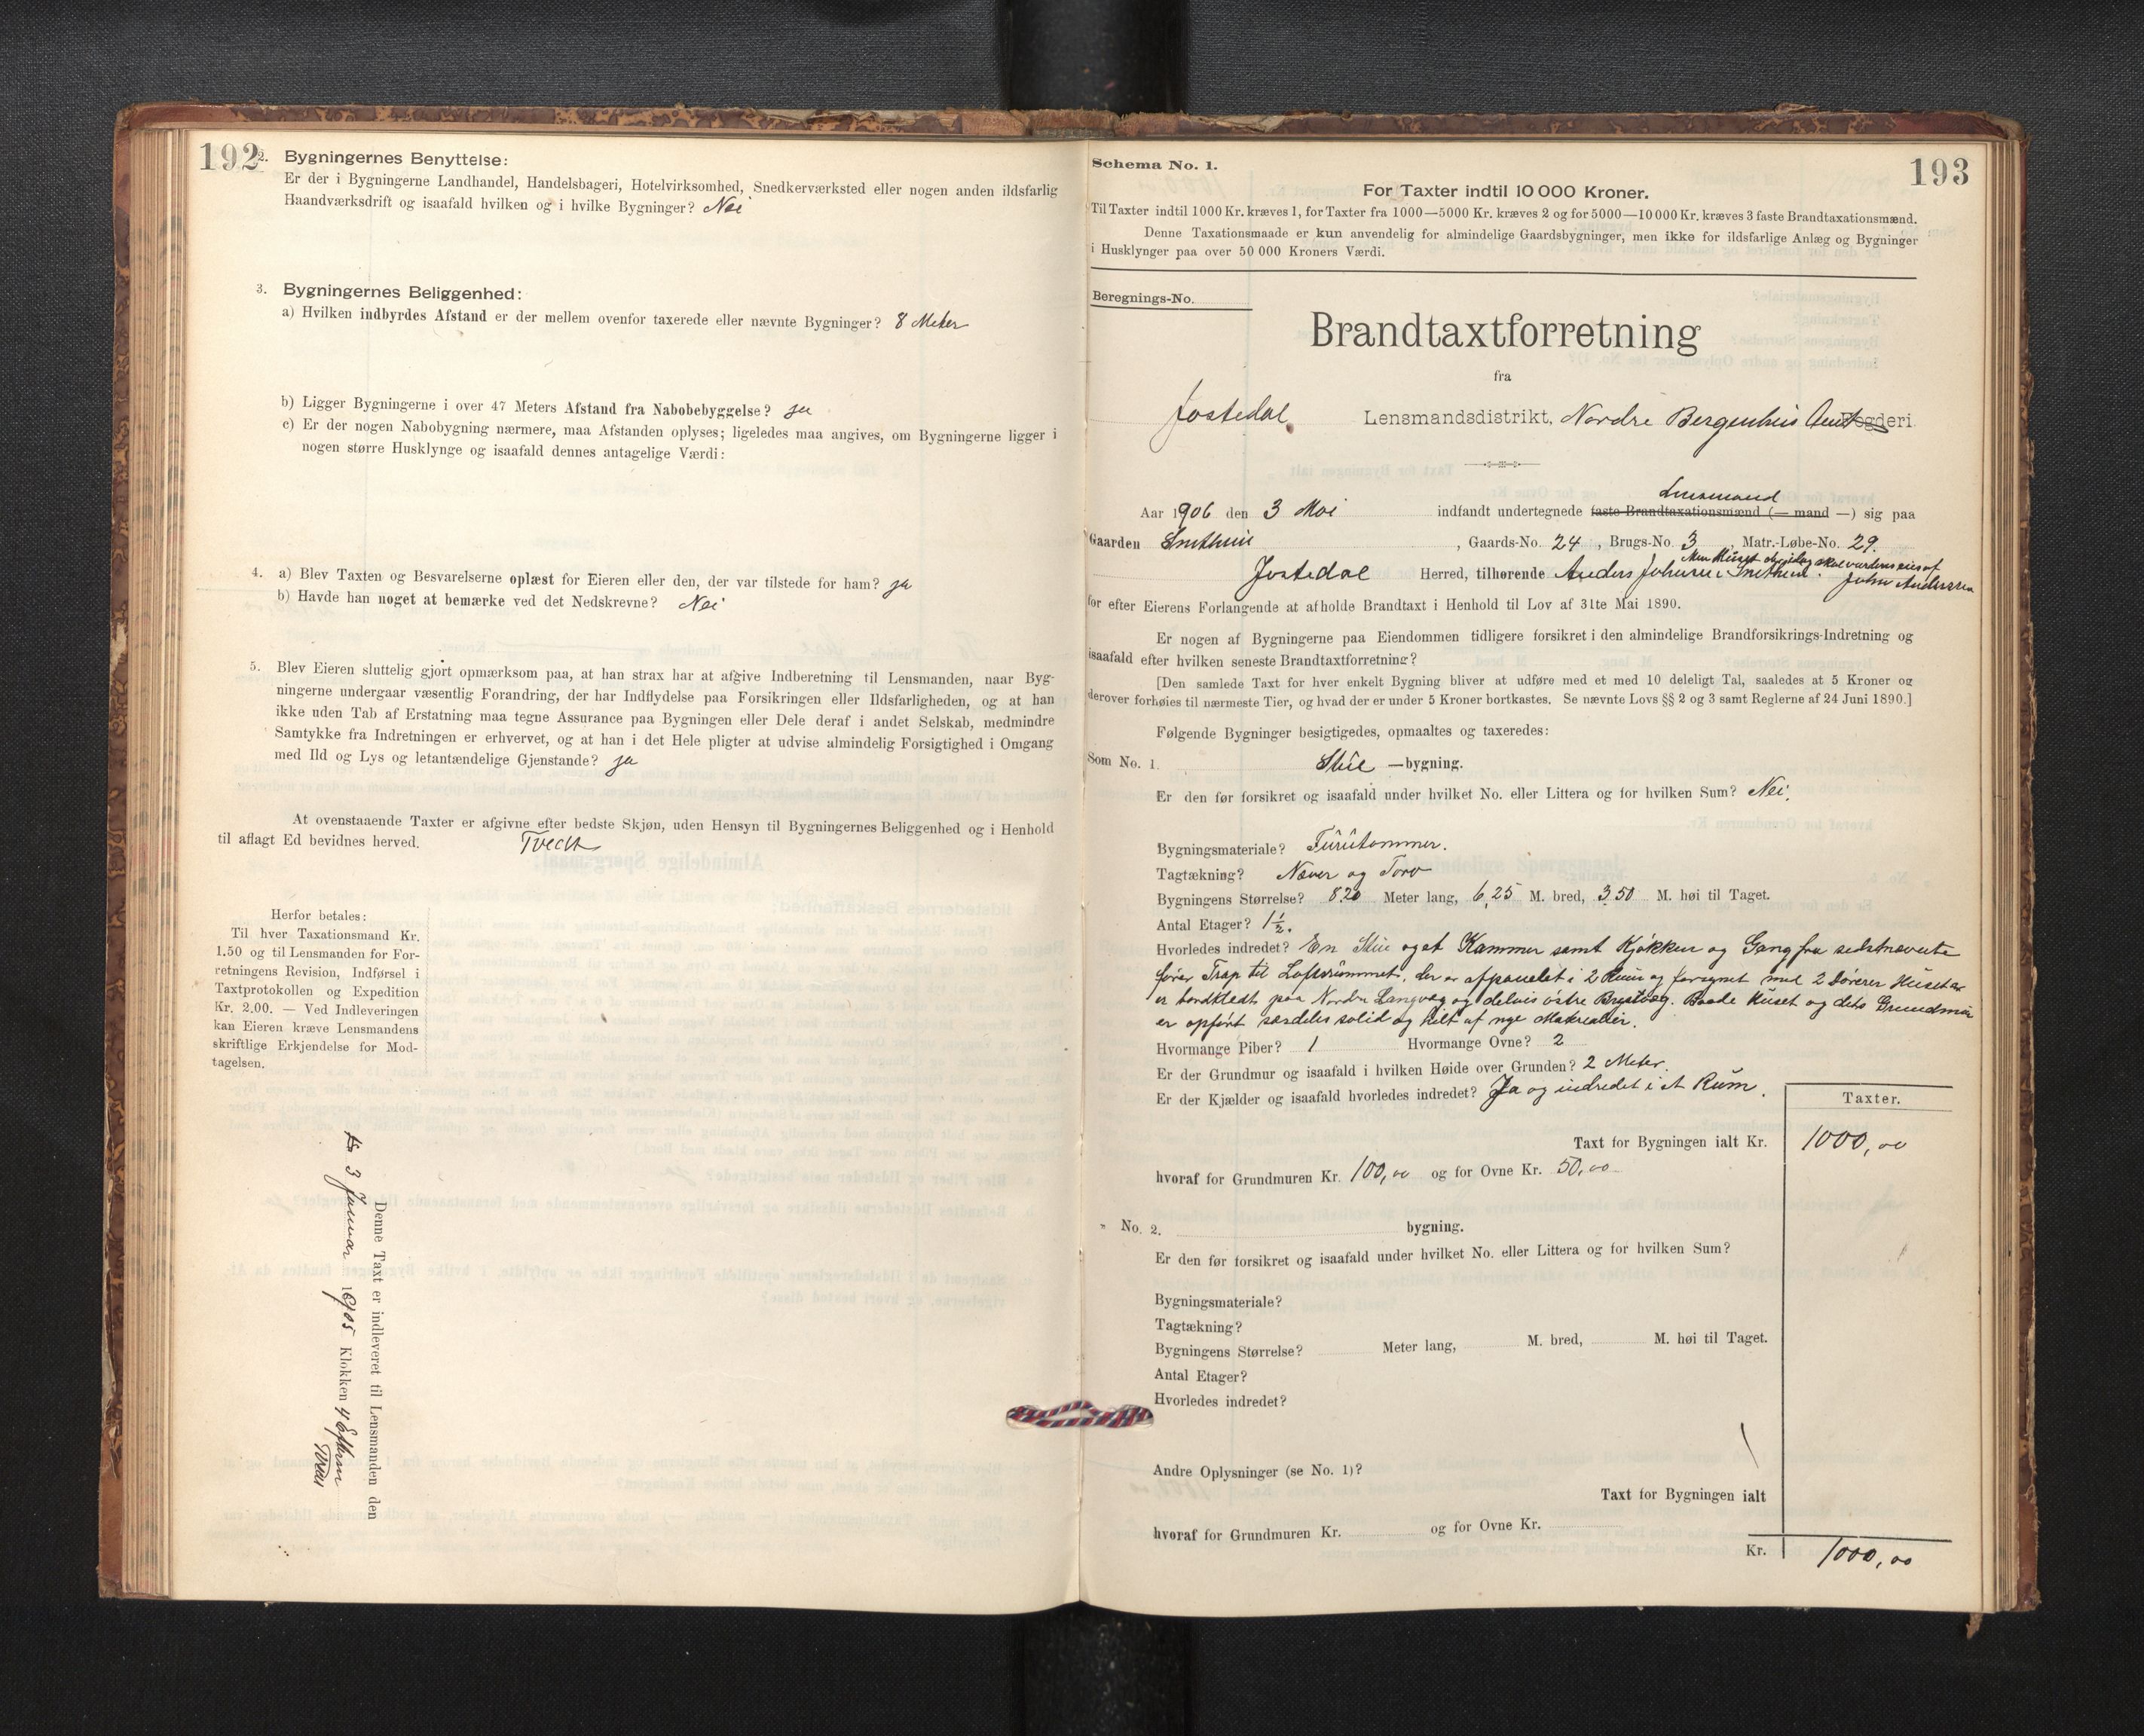 192
2. Bygningernes Benyttelse:
Er der i Bygningerne Landhandel, Handelsbageri, Hotelvirksomhed, Snedkerværksted eller nogen anden ildsfarlig
Haandværksdrift og isaafald hvilken og i hvilke Bygninger? Nei
3. Bygningernes Beliggenhed:
a) Hvilken indbyrdes Afstand er der mellem ovenfor taxerede eller nævnte Bygninger? 8 Meter
b) Ligger Bygningerne i over 47 Meters Afstand fra Nabobebyggelse? ja
c) Er der nogen Nabobygning nærmere, maa Afstanden oplyses; ligeledes maa angives, om Bygningerne ligger i
nogen større Husklynge og isaafald dennes antagelige Værdi:
4. a) Blev Taxten og Besvarelserne oplæst for Eieren eller den, der var tilstede for ham? ja
b) Havde han noget at bemærke ved det Nedskrevne? Nei
5. Blev Eieren sluttelig gjort opmærksom paa, at han strax har at afgive Indberetning til Lensmanden, naar Byg-
ningerne undergaar væsentlig Forandring, der har Indflydelse paa Forsikringen eller Ildsfarligheden, og at han
ikke uden Tab af Erstatning maa tegne Assurance paa Bygningen eller Dele deraf i andet Selskab, medmindre
Samtykke fra Indretningen er erhvervet, og at han i det Hele pligter at udvise almindelig Forsigtighed i Omgang
med Ild og Lys og letantændelige Gjenstande? ja
At ovenstaaende Taxter er afgivne efter bedste Skjøn, uden Hensyn til Bygningernes Beliggenhed og i Henhold
til aflagt Ed bevidnes herved. Tvedt
Herfor betales:
Til hver Taxationsmand Kr.
1.50 og til Lensmanden for For-
retningens Revision, Indførsel i
Taxtprotokollen og Expedition
Kr. 2.00. — Ved Indleveringen
kan Eieren kræve Lensmandens
skriftlige Erkjendelse for Mod-
tagelsen.
Denne Taxt er indleveret til Lensmanden den
3 Januar 1905 Klokken 4 Efterm
193
Schema No. 1.
For Taxter indtil 10 000 Kroner.
Til Taxter indtil 1000 Kr. kræves 1, for Taxter fra 1000—5000 Kr. kræves 2 og for 5000—10 000 Kr. kræves 3 faste Brandtaxationsmænd.
Denne Taxationsmaade er kun anvendelig for almindelige Gaardsbygninger, men ikke for ildsfarlige Anlæg og Bygninger
i Husklynger paa over 50 000 Kroners Værdi.
Beregnings-No.
Brandtaxtforretning
fra
Jostedal Lensmandsdistrikt, Nordre Bergenhus Amt Fogderi.
Lensmand
Aar 1906 den 3 Mai indfandt undertegnede faste Brandtaxationsmænd (— mand —) sig paa
Gaarden , Gaards-No. 24, Brugs-No. 3, Matr.-Løbe-No. 29.
Men Huset skal være eies af
Jostedal Herred, tilhørende Anders Johnsen John Anderssen
for efter Eierens Forlangende at afholde Brandtaxt i Henhold til Lov af 31te Mai 1890.
Er nogen af Bygningerne paa Eiendommen tidligere forsikret i den almindelige Brandforsikrings-Indretning og
isaafald efter hvilken seneste Brandtaxtforretning?
[Den samlede Taxt for hver enkelt Bygning bliver at udføre med et med 10 deleligt Tal, saaledes at 5 Kroner og
derover forhøies til nærmeste Tier, og hvad der er under 5 Kroner bortkastes. Se nævnte Lovs §§ 2 og 3 samt Reglerne af 24 Juni 1890.]
Følgende Bygninger besigtigedes, opmaaltes og taxeredes:
Som No. 1. Stue —bygning.
Er den før forsikret og isaafald under hvilket No. eller Littera og for hvilken Sum? Nei.
Bygningsmateriale? Furutømmer.
Tagtækning? Næver og Torv
Bygningens Størrelse? 8.20 Meter lang, 6,25 M. bred, 3.50 M. høi til Taget.
Antal Etager? 1½.
Hvorledes indredet? En Stue og et Kammer samt Kjøkken og Gang fra sidstnævnte
fører Trap til Loftsrummet, der er afpanelet i 2 Rum og forsynet med 2 Dører. Huset
er bordklædt paa Nordre Langvæg og delvis østre Brystvæg. Baade Huset og dets Grundmur
er opført særdeles solid og helt af nye Materialier.
Hvormange Piber? 1 Hvormange Ovne? 2
Er der Grundmur og isaafald i hvilken Høide over Grunden? 2 Meter.
Er der Kjælder og isaafald hvorledes indredet? Ja og indredet i et Rum.
Taxter.
Taxt for Bygningen ialt Kr. 1000,00
hvoraf for Grundmuren Kr. 100,00 og for Ovne Kr. 50,00
" No. 2. bygning.
Er den før forsikret og isaafald under hvilket No. eller Littera og for hvilken Sum?
Bygningsmateriale?
Tagtækning?
Bygningens Størrelse? Meter lang, M. bred, M. høi til Taget.
Antal Etager?
Hvorledes indredet?
Andre Oplysninger (se No. 1)?
Taxt for Bygningen ialt
hvoraf for Grundmuren Kr. og for Ovne Kr.
Kr. 1000,00